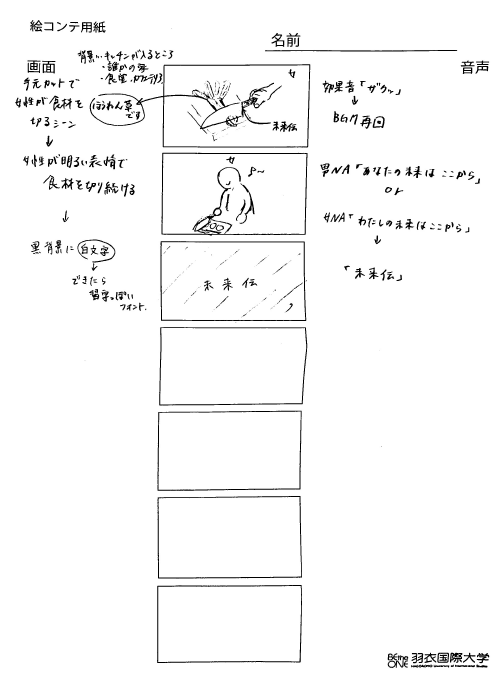 絵コンテ用紙
名前
画面
音声
背景…キッチンが入るところ
・誰かの家
・食堂、カフェテリア
手元カットで
女性が食材を
切るシーン
ほうれん草
です
女
未来伝
効果音「ザクッ」
BGM再開
女性が明るい表情で
食材を切り続ける
女
男NA「あなたの未来はここから」
or
女NA「わたしの未来はここから」
黒背景に白文字
できたら
習字っぽい
フォント.
未来伝
「未来伝」
BEme ONE 羽衣国際大学